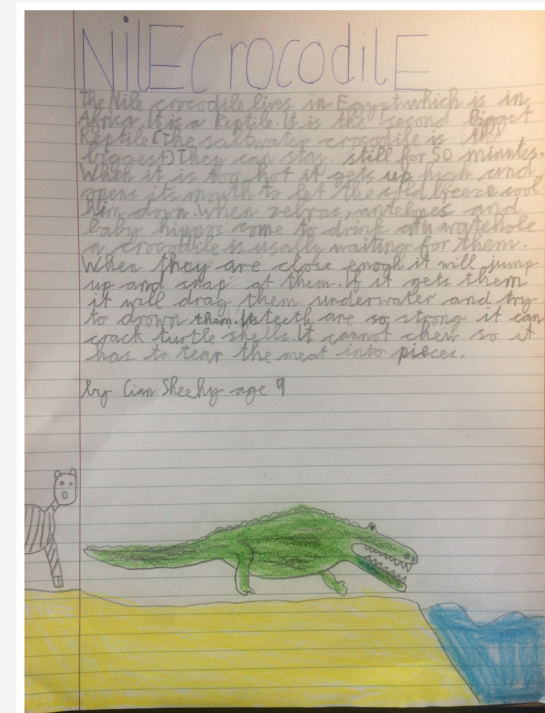 NilE CrocodilE
The Nile crocodile lives in Egypt which is in
Africa. It is a Reptile. It is the second biggest
Reptile (the saltwater crocodile is the
biggest) They can stay still for 50 minutes.
When it is too hot it gets up high and
opens its mouth to let the cold breeze cool
him down. When zebras, antelopes and
baby hippos come to drink at watehole
a crocodile is usally waiting for them.
When they are close enogh it will jump
up and snap at them. If it gets them
it will drag them underwater and try
to drown them. Its teeth are so strong it can
crack turtle shells. It cannot chew so it
has to tear the meat into pieces.
by Cian Sheehy age 9